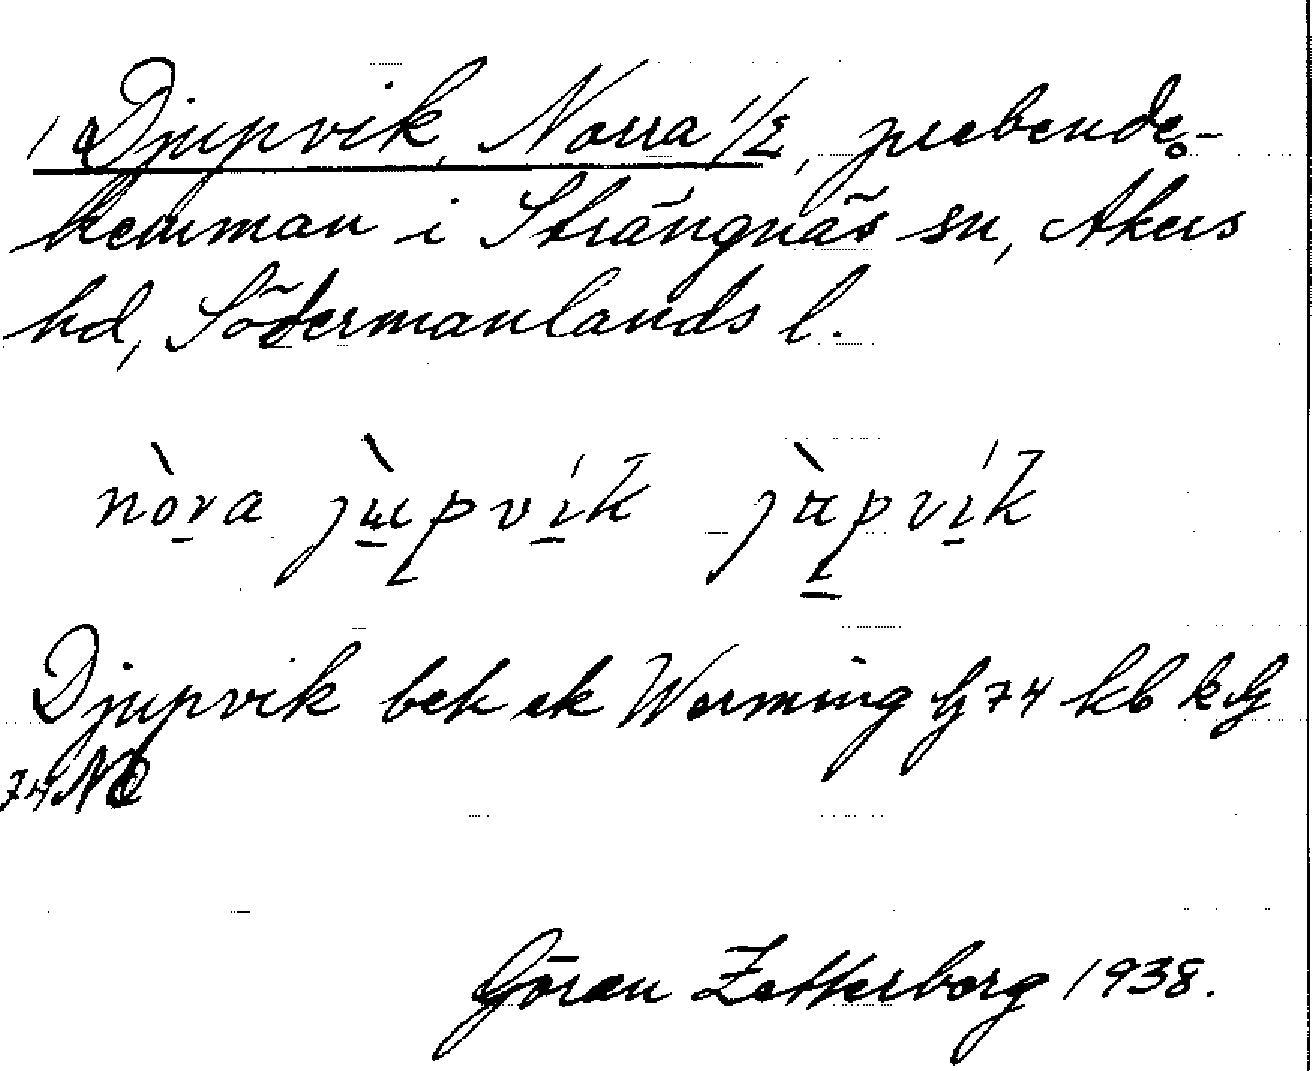 1 Djupvik, Norra 1/2, prebende-
hemman i Strängnäs sn, Åkers
hd, Södermanlands l.
nòra jùpvík jùpvík
Djupvik bek ek Werming G 74 kb k G
74 NO
Göran Zetterborg 1938.